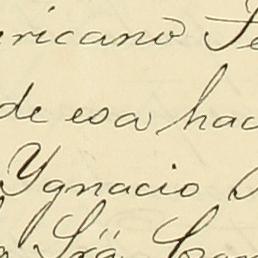 ericano Fe
de esa hac
Ygnacio
Srä